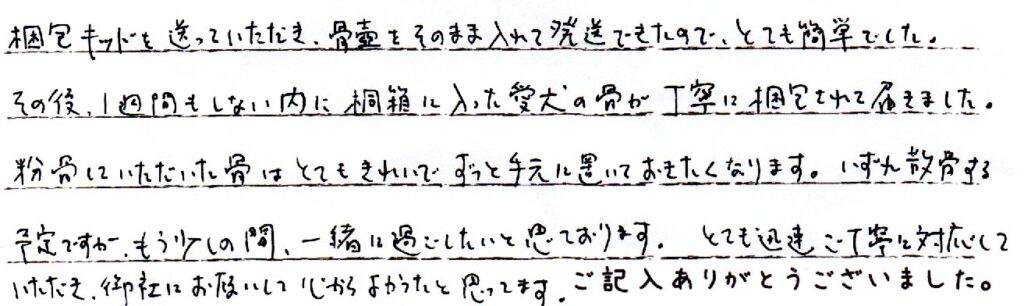 梱包キットを送っていただき、骨壷をそのまま入れて発送できたので、とても簡単でした。
その後、1週間もしない内に桐箱に入った愛犬の骨が丁寧に梱包されて届きました。
粉骨していただいた骨はとてもきれいでずっと手元に置いておきたくなります。いずれ散骨する
予定ですが、もう少しの間、一緒に過ごしたいと思っております。 とても迅速、ご丁寧に対応して
いただき、御社にお願いして心からよかったと思ってます。ご記入ありがとうございました。